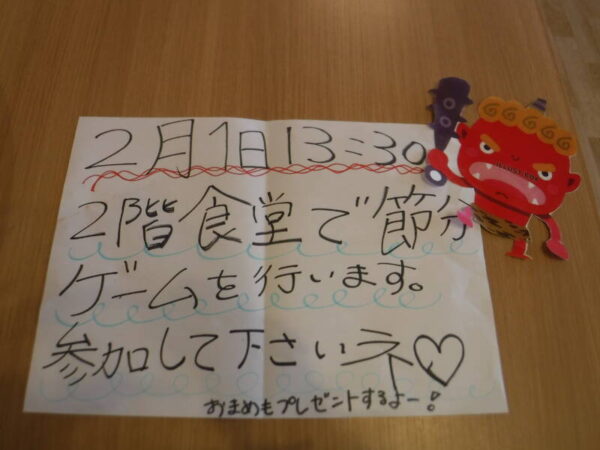 2月1日13:30
2階食堂で節分
ゲームを行います。
参加して下さいネ♡
おまめもプレゼントするよー!